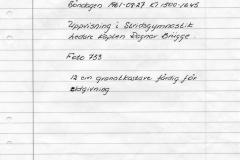 Söndagen 1961-08-27 Kl 1500-1645
Uppvisning i Stridsgymnastik
ledare Kapten Ragnar Brügge
Foto 733
12 cm granatkastare färdig för
eldgivning